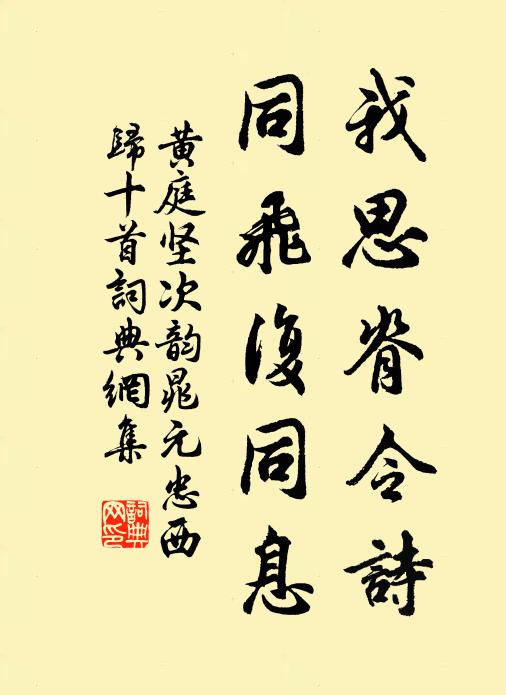 我思脊令詩
同飛復同息
黄庭坚次韵晁元忠西
歸十首詞典網集
詞典
网印